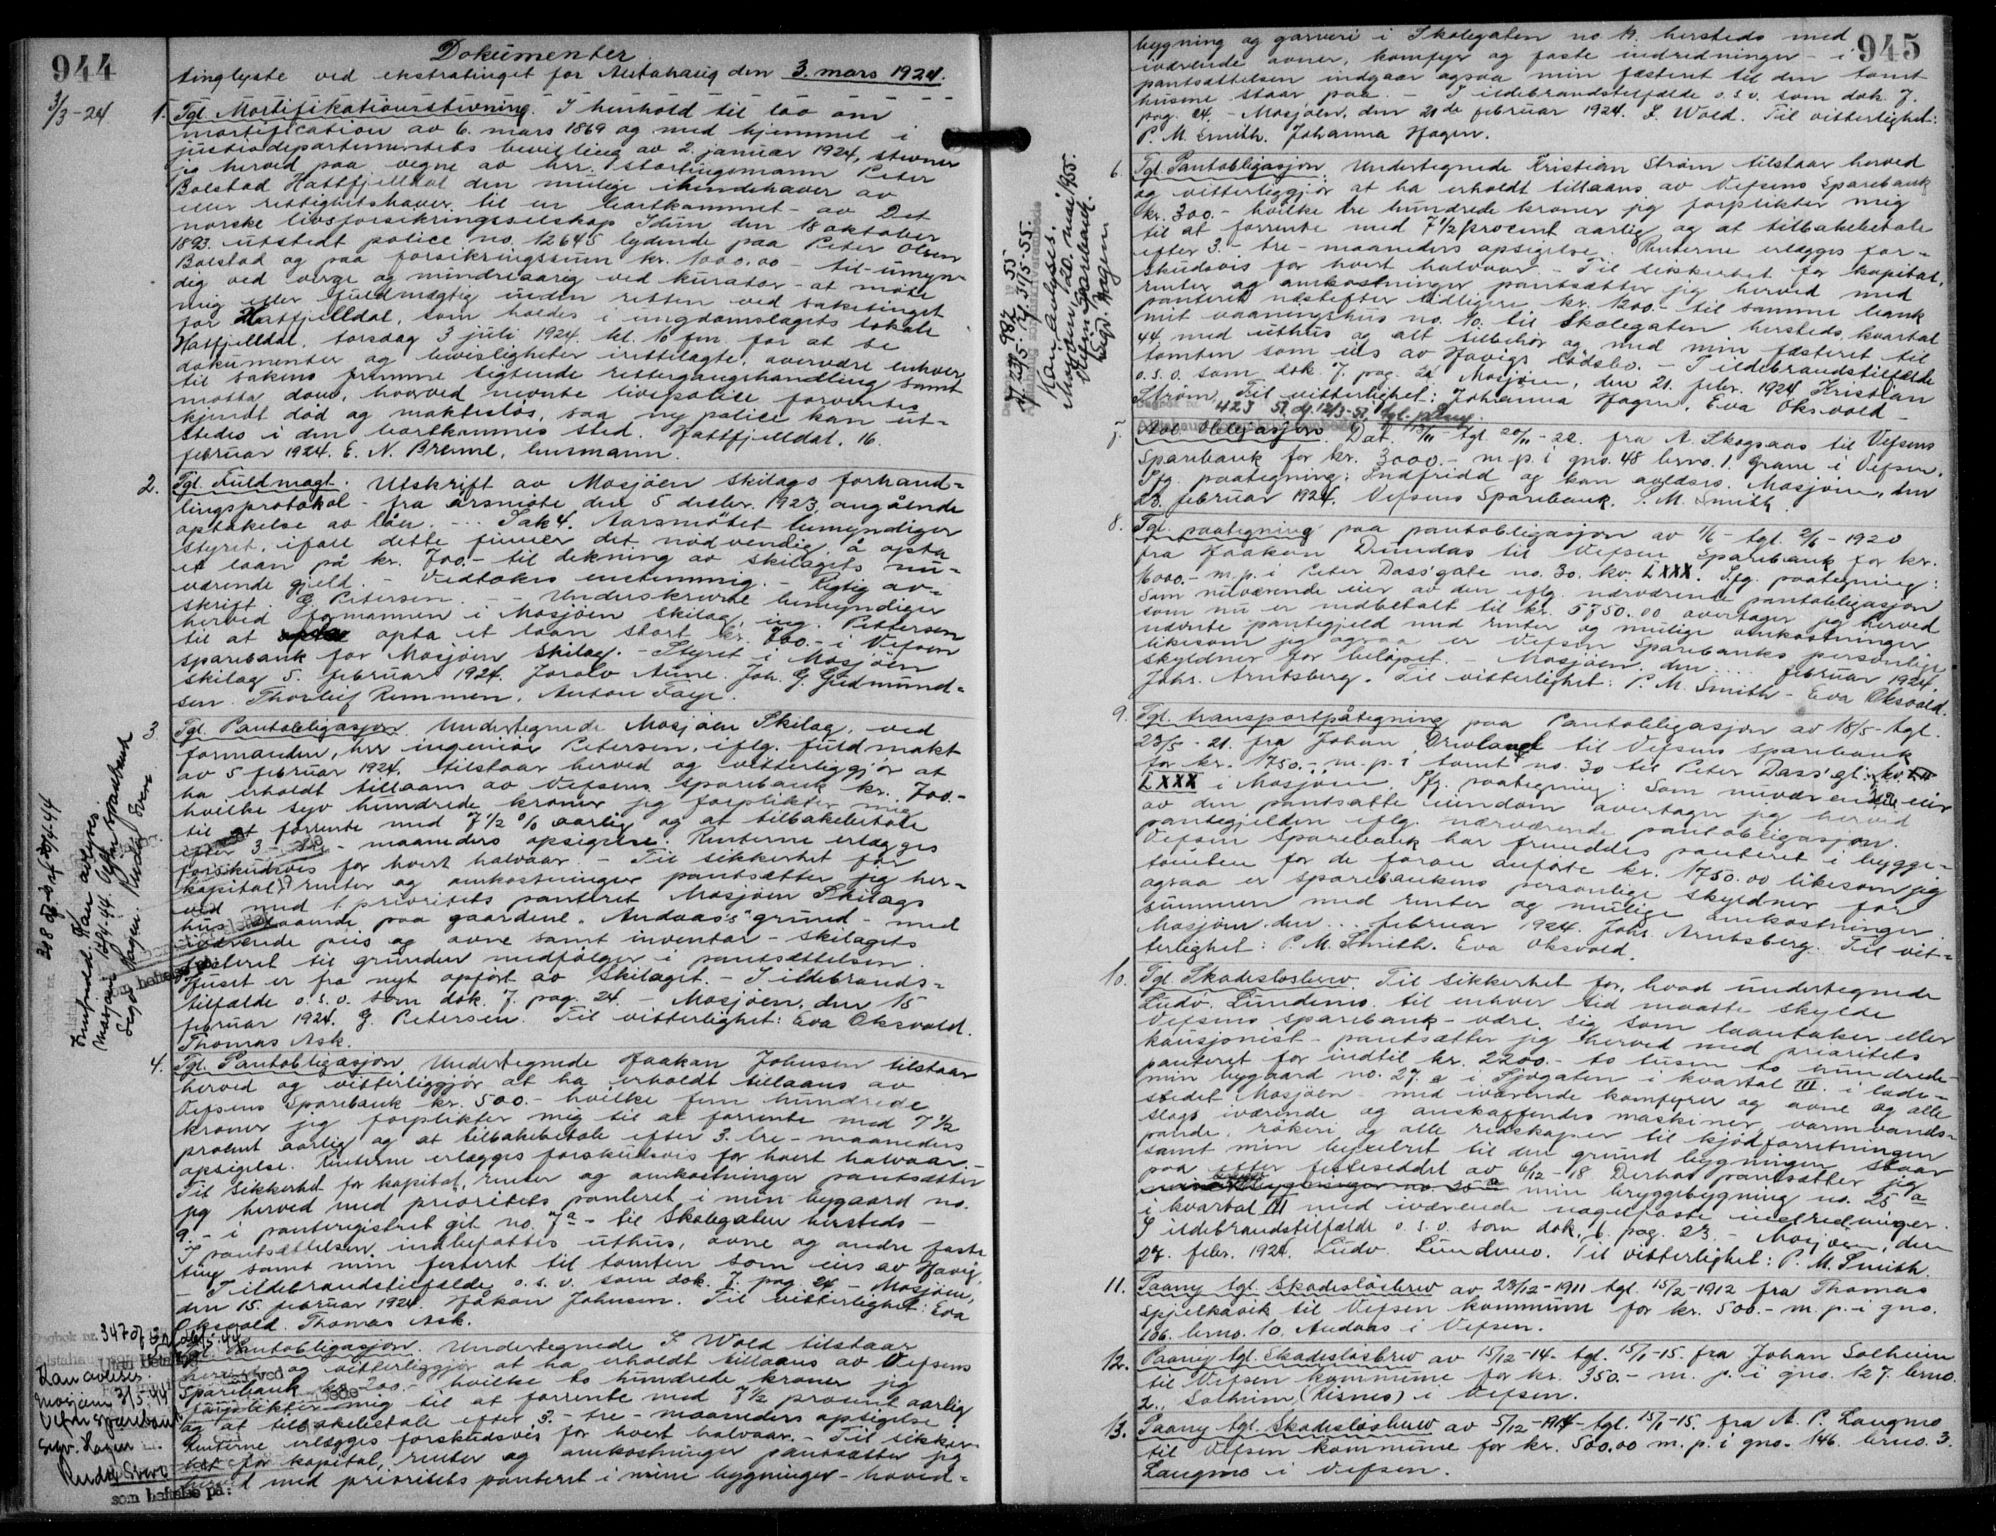 944
Dokumenter
tinglyste ved ekstratinget for Alstahaug den 3. mars 1924.
3/3-24
1. Tgl. Mortifikationsstevning. I henhold til lov om
mortifikation av 6. mars 1869 og med hjemmel i
justisdepartementets bevilling av 2. januar 1924, stevner
jeg herved paa vegne av hrr. stortingsmann Peter
Bolstad Hattfjelldal den mulige ihændehaver av
eller rettighetshaver til en bortkommet - av Det
norske livsforsikringsselskap Idun den 18 oktober
1893 utstedt police no. 12645 lydende paa Peter Olsen
Bolstad og paa forsikringssum kr. 1000.00 - til - umyn-
dig ved verge og mindreaarig ved kurator - at møte
mig eller fuldmægtig inden retten ved saketinget
for Hatfjelldal, som holdes i ungdomslagets lokale
Hatfjelldal, torsdag 3 juli 1924 kl. 10 fm. for at se
dokumenter og bevisligheter irettelagte, overvære enhver
til sakens fremme sigtende rettergangshandling samt
motta dom, hvorved nevnte livspolice forventes
kjendt død og maktesløs, saa ny police kan ut-
stedes i den bortkomnes sted. Hattfjelldal, 16.
februar 1924. E. N. Bremne, lensmann.
2. Tgl. Fuldmagt. Utskrift av Mosjöen skilags forhand-
lingsprotokol - fra årsmöte den 5 desbr. 1923, angående
optakelse av lån. - - - Sak 4. Aarsmötet bemyndiger
styret, ifall dette finner det nödvendig, å opta
et laan på kr. 700.- til dekning av skilagets nu-
værende gjeld. - Vedtokes enstemmig. - Rigtig av-
skrift. G Petersen. - - Underskrevne bemyndiger
herved formannen i Mosjöen skilag, ing. Pettersen
til at opta et laan stort kr. 700.- i Vefsen
sparebank for Mosjöen skilag. - Styret i Mosjöen
skilag 5. februar 1924. Joralv Aune. Joh. G. Gudmund-
sen. Thorleif Remmen. Anton Faye.
3. Tgl. Pantobligasjon. Undertegnede Mosjöen Skilag, ved
formanden, herr ingeniör Petersen, iflg. fuldmakt
av 5 februar 1924. tilstaar herved og vitterliggjör at
ha erholdt tillaans av Vefsens sparebank kr. 700.-
hvilke syv hundrede kroner jeg forplikter mig
til at forrente med 7 1/2 % aarlig og at tilbakebetale
efter 3 - tre - maaneders opsigelse. Renterne erlægges
forskudsvis for hvert halvaar. - Til sikkerhet for
kapital, renter og omkostninger pantsætter jeg her-
ved med 1 prioritets panteret Mosjöen Skilags
hus staaende paa gaardene Andaas's grund - med
iværende peis og ovne samt inventar - skilagets
festeret til grunden medfölger i pantsættelsen.
Huset er fra nyt opfört av skilaget. - I ildebrands-
tilfælde o.s.v. som dok. 7. pag. 24. - Mosjöen, den 15
februar 1924. G. Petersen. Til vitterlighet: Eva Oksvold.
Thomas Ask.
4. Tgl. Pantobligasjon. Undertegnede Haakon Johnsen tilstaar
herved og vitterliggjör at ha erholdt tillaans av
Vefsens Sparebank kr. 500.- hvilke fem hundrede
kroner jeg forplikter mig til at forrente med 7 1/2
procent aarlig og at tilbakebetale efter 3. tre - maaneders
opsigelse. Renterne erlægges forskudsvis for hvert halvaar.-
Til sikkerhet for kapital, renter og omkostninger pantsætter
jeg herved med prioritets panteret i min bygaard no.
9. - i panteregistret git no. 7a - til Skolegaten hersteds -
I pantsættelsen indbefattes uthus, ovne og andre faste
ting samt min festeret til tomten som eies av Havig.
- I ildebrandstilfælde o.s.v. som dok. 7. pag. 24 - Mosjöen,
den 15. februar 1924. Håkon Johnsen. Til vitterlighet: Eva
Oksvold. Thomas Ask.
Tgl. Pantobligasjon. Undertegnede I. Wold tilstaar
herved og vitterliggjör at ha erholdt tillaans av Vefsens
Sparebank kr. 200.- hvilke to hundrede kroner jeg
forplikter mig til at forrente med 7 1/2 procent aarlig
og at tilbakebetale efter 3. - tre - maaneders opsigelse.
Renterne erlægges forskudsvis for hvert halvaar. - Til sikker-
het for kapital, renter og omkostninger pantsætter jeg
herved med prioritets panteret i mine bygninger - hoved-
Kan avlyses
Mosjöen 31/5-44
Vefsn sparebank
som heftelse på:
945
bygning og garveri i Skolegaten no 13. hersteds med
iværende ovner, komfyr og faste indredninger - i
pantsættelsen indgaar ogsaa min festeret til den tomt
husene staar paa. - I ildebrandstilfælde o.s.v. som dok 7.
pag. 24. - Mosjöen, den 21de februar 1924. I. Wold. Til vitterlighet:
P. M. Smith. Johanna Hagen.
Kan avlyses.
Mosjøen, 20. mai 1955.
Vefsn Sparebank
6. Tgl. Pantobligasjon. Undertegnede Kristian Ström tilstaar herved
og vitterliggjör at ha erholdt tillaans av Vefsens Sparebank
kr. 300.- hvilke tre hundrede kroner jeg forplikter mig
til at forrente med 7 1/2 procent aarlig og at tilbakebetale
efter 3 - tre - maaneders opsigelse. Renterne erlægges for-
skudsvis for hvert halvaar - Til sikkerhet for kapital,
renter og omkostninger pantsætter jeg herved med
panteret næstefter tidligere kr. 1200.- til samme bank
mit vaaningshus no. 10. til Skolegaten hersteds, kvartal
44, med uthus og alt tilbehör og med min festeret til
tomten som eies av Havigs Dödsbo. - I ildebrandstilfælde
o.s.v. som dok 7. pag. 24 Mosjöen, den 21. febr. 1924 Kristian
Ström. Til vitterlighet: Johanna Hagen. Eva Oksvold -
7. Avl. Obligasjon. Dat. 13/11 - tgl 20/11-22. fra A. Skogsaas til Vefsens
Sparebank for kr. 3000.- m. p. i gno. 48 brno. 1. Grane i Vefsen.
Sfg. paategning: Indfridd og kan avlyses. Mosjöen, den
23. februar 1924. Vefsens Sparebank. P. M. Smith.
8. Tgl. paategning paa pantobligasjon av 1/6 - tgl. 2/6 - 1920
fra Haakon Dundas til Vefsen Sparebank for kr.
6000.- m. p. i Peter Dass'gate no. 30. kv. LXXX. Sfg. paategning:
Som nuværende eier av den iflg. nærværende pantobligasjon
som nu er nedbetalt til kr. 5750.00 overtager jeg herved
nævnte pantegjeld med renter og mulige omkostninger
likesom jeg ogsaa er Vefsen Sparebanks personlige
skyldner for belöpet. - Mosjöen, den ... februar 1924.
Johs. Arntsberg. Til vitterlighet: P. M. Smith - Eva Oksvold.
9. Tgl. transportpåtegning paa Pantobligasjon av 18/5 - tgl.
23/5 - 21. fra Johan Drevland til Vefsens Sparebank
for kr. 1750.- m. p. i tomt no. 30 til Peter Dass'gt. kv.
LXXX i Mosjöen. Sfg. paategning: Som nuværende eier
av den pantsatte eiendom overtager jeg herved
pantegjelden iflg. nærværende pantobligasjon.
Vefsen Sparebank har fremdeles panteret i bygge-
tomten for de foran anförte kr. 1750.00 likesom jeg
ogsaa er sparebankens personlige skyldner for
summen med renter og mulige omkostninger.
Mosjöen den ... februar 1924. Johs. Arntsberg. Til vit-
terlighet: P. M. Smith. Eva Oksvold.
10. Tgl. Skadeslösbrev. Til sikkerhet for, hvad undertegnede
Ludv. Lundemo til enhver tid maatte skylde
Vefsens sparebank - være sig som laantaker eller
kausjonist - pantsætter jeg herved med prioritets
panteret for indtil kr. 2200.- to tusen to hundrede -
min bygaard no. 27. a i Sjögaten i kvartal III. i lade-
stedet Mosjöen - med iværende komfyrer og ovne og alle
slags iværende og anskaffendes maskiner, varmvands-
pande, rökeri og alle redskaper til kjödforretningen
samt min bygselret til den grund bygningen staar
paa efter festeseddel av 6/12-18. Derhos pantsætter jeg
min bryggebygning no. 25 a
i kvartal III med iværende naglefaste indredninger.
I ildebrandstilfælde o.s.v. som dok. 6. pag. 23. - Mosjöen, den
27. febr. 1924. Ludv. Lundemo. Til vitterlighet: P. M. Smith.
11. Paany tgl. Skadeslösbrev av 23/12-1911 tgl. 15/2-1912 fra Thomas
Spjelkavik til Vefsen kommune for kr. 500.- m. p. i gno.
106. brno. 10. Andaas i Vefsen.
12. Paany tgl. Skadeslösbrev av 15/12-14. tgl. 15/1-15. fra Johan Solheim
til Vefsen kommune for kr. 350.- m. p. i gno. 127. brno.
2., Solheim (Risnes) i Vefsen.
13. Paany tgl. Skadeslösbrev av 5/12-1914 - tgl. 15/1-15. fra A. P. Langmo
til Vefsen kommune for kr. 500,00 m. p. i gno. 146. brno. 3.
Langmo i Vefsen.